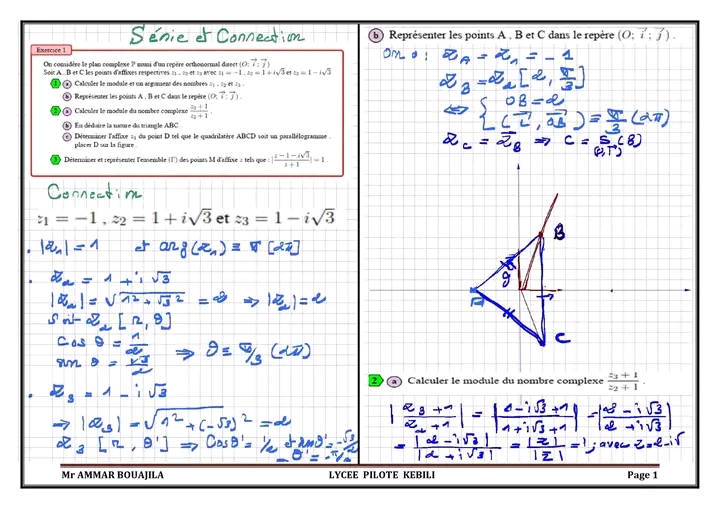 Série et Connection
Exercice 1
On considère le plan complexe P muni d'un repère orthonormal direct (O; i⃗ ; j⃗) .
Soit A , B et C les points d'affixes respectives z₁ , z₂ et z₃ avec z₁ = −1 , z₂ = 1 + i√3 et z₃ = 1 − i√3
1 a Calculer le module et un argument des nombres z₁ , z₂ et z₃ .
b Représenter les points A , B et C dans le repère (O; i⃗ ; j⃗) .
2 a Calculer le module du nombre complexe (z₃ + 1)/(z₂ + 1) .
b En déduire la nature du triangle ABC
c Déterminer l'affixe z₄ du point D tel que le quadrilatère ABCD soit un parallélogramme .
placer D sur la figure .
3 Déterminer et représenter l'ensemble (Γ) des points M d'affixe z tels que : |(z − 1 − i√3)/(z + 1)| = 1 .
Connection
z₁ = −1 , z₂ = 1 + i√3 et z₃ = 1 − i√3
. |z₁| = 1 et arg(z₁) ≡ π [2π]
. z₂ = 1 + i√3
|z₂| = √(1² + √3²) = 2 ⇒ |z₂| = 2
Soit z₂ [r, θ]
Cos θ = 1/2
sin θ = √3/2 ⇒ θ ≡ π/3 (2π)
. z₃ = 1 − i√3
⇒ |z₃| = √(1² + (−√3)²) = 2
z₃ [r, θ'] ⇒ Cosθ' = 1/2 et sinθ' = −√3/2
⇒ θ' = −π/3
b Représenter les points A , B et C dans le repère (O; i⃗ ; j⃗) .
On a : z_A = z₁ = −1
z_B = z₂ [2, π/3]
⇔ { OB = 2
(i⃗, OB⃗) ≡ π/3 (2π)
z_C = z̄_B ⇒ C = S(B)
(O, i⃗)
B
A
C
2 a Calculer le module du nombre complexe (z₃ + 1)/(z₂ + 1) .
|(z₃ + 1)/(z₂ + 1)| = |(1 − i√3 + 1)/(1 + i√3 + 1)| = |(2 − i√3)/(2 + i√3)|
= |2 − i√3|/|2 + i√3| = |z|/|z̄| = 1 ; avec z = 2 − i√
Mr AMMAR BOUAJILA LYCEE PILOTE KEBILI Page 1